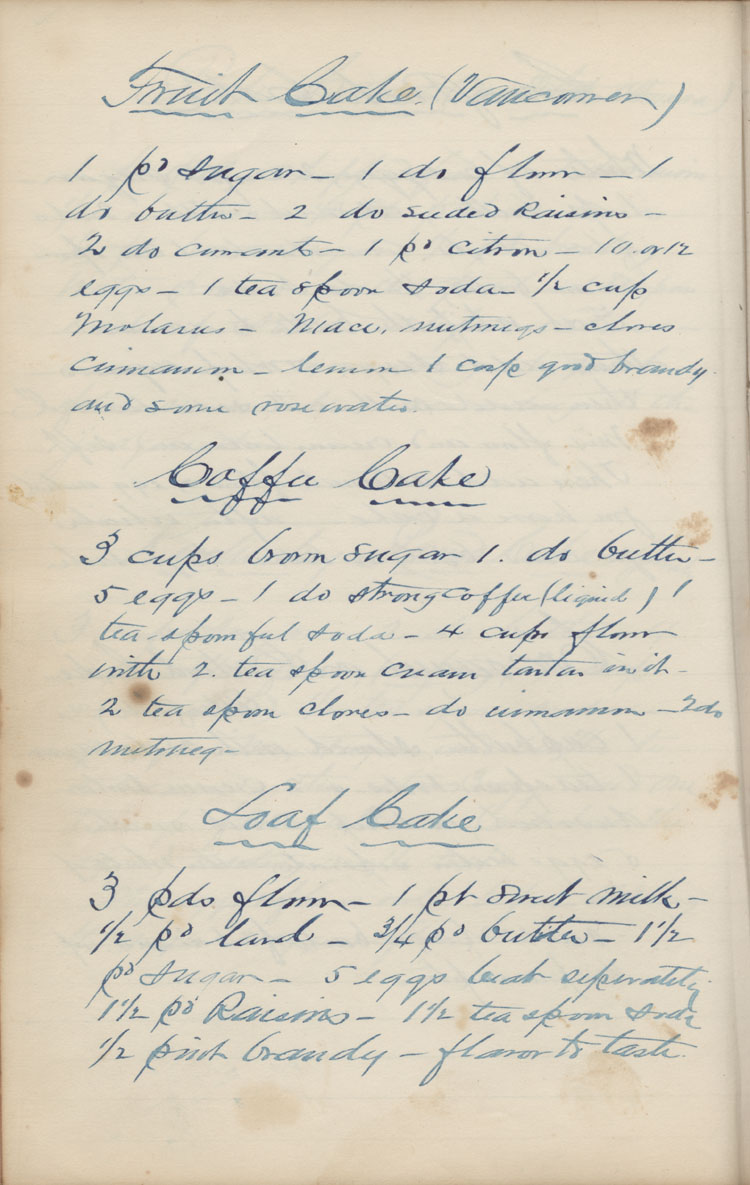 Fruit Cake. (Vancouver)
1 pd sugar – 1 do flour – 1
do butter – 2 do seeded Raisins –
2 do currants – 1 pd citron – 10 or 12
eggs – 1 tea spoon soda – 1/2 cup
Molasses – Mace, nutmegs – cloves
cinnamon – lemon 1 cup good brandy
and some rosewater.
Coffee Cake
3 cups brown sugar 1. do butter –
5 eggs – 1 do strong coffee (liquid) 1
tea-spoonful soda – 4 cups flour
with 2. tea spoon cream tartar in it –
2 tea spoon cloves – do cinnamon – 2 do
nutmeg –
Loaf Cake
3 pds flour – 1 pt sweet milk –
1/2 pd lard – 3/4 pd butter – 1 1/2
pd sugar – 5 eggs beat seperately
1 1/2 pd Raisins – 1 1/2 tea spoon soda
1/2 pint brandy – flavor to taste.